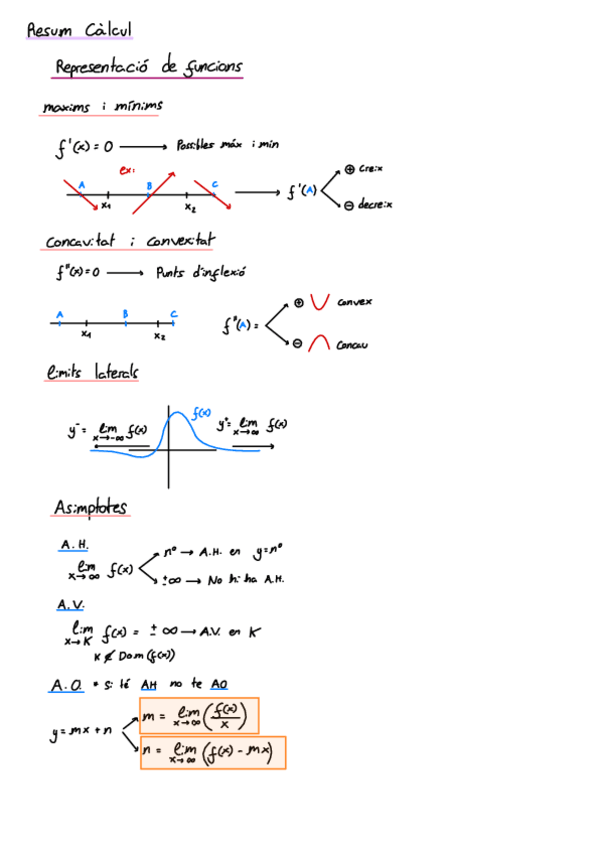 Resum Càlcul
Representació de funcions
maxims i mínims
f'(x) = 0 ⟶ Possibles máx i min
ex:
A B C
x₁ x₂
⟶ f'(A)
⊕ Creix
⊖ decreix
Concavitat i Convexitat
f"(x) = 0 ⟶ Punts d'inflexió
A B C
x₁ x₂
f"(A) =
⊕ ∪ Convex
⊖ ∩ Concau
límits laterals
f(x)
y⁻ = lim x→-∞ f(x)
y⁺ = lim x→∞ f(x)
Asímptotes
A.H.
lim x→∞ f(x)
nº → A.H. en y = nº
±∞ → No hi ha A.H.
A.V.
lim x→K f(x) = ± ∞ → A.V. en K
K ∉ Dom (f(x))
A.O. * Si té AH no te AO
y = mx + n
m = lim x→∞ (f(x)/x)
n = lim x→∞ (f(x) - mx)